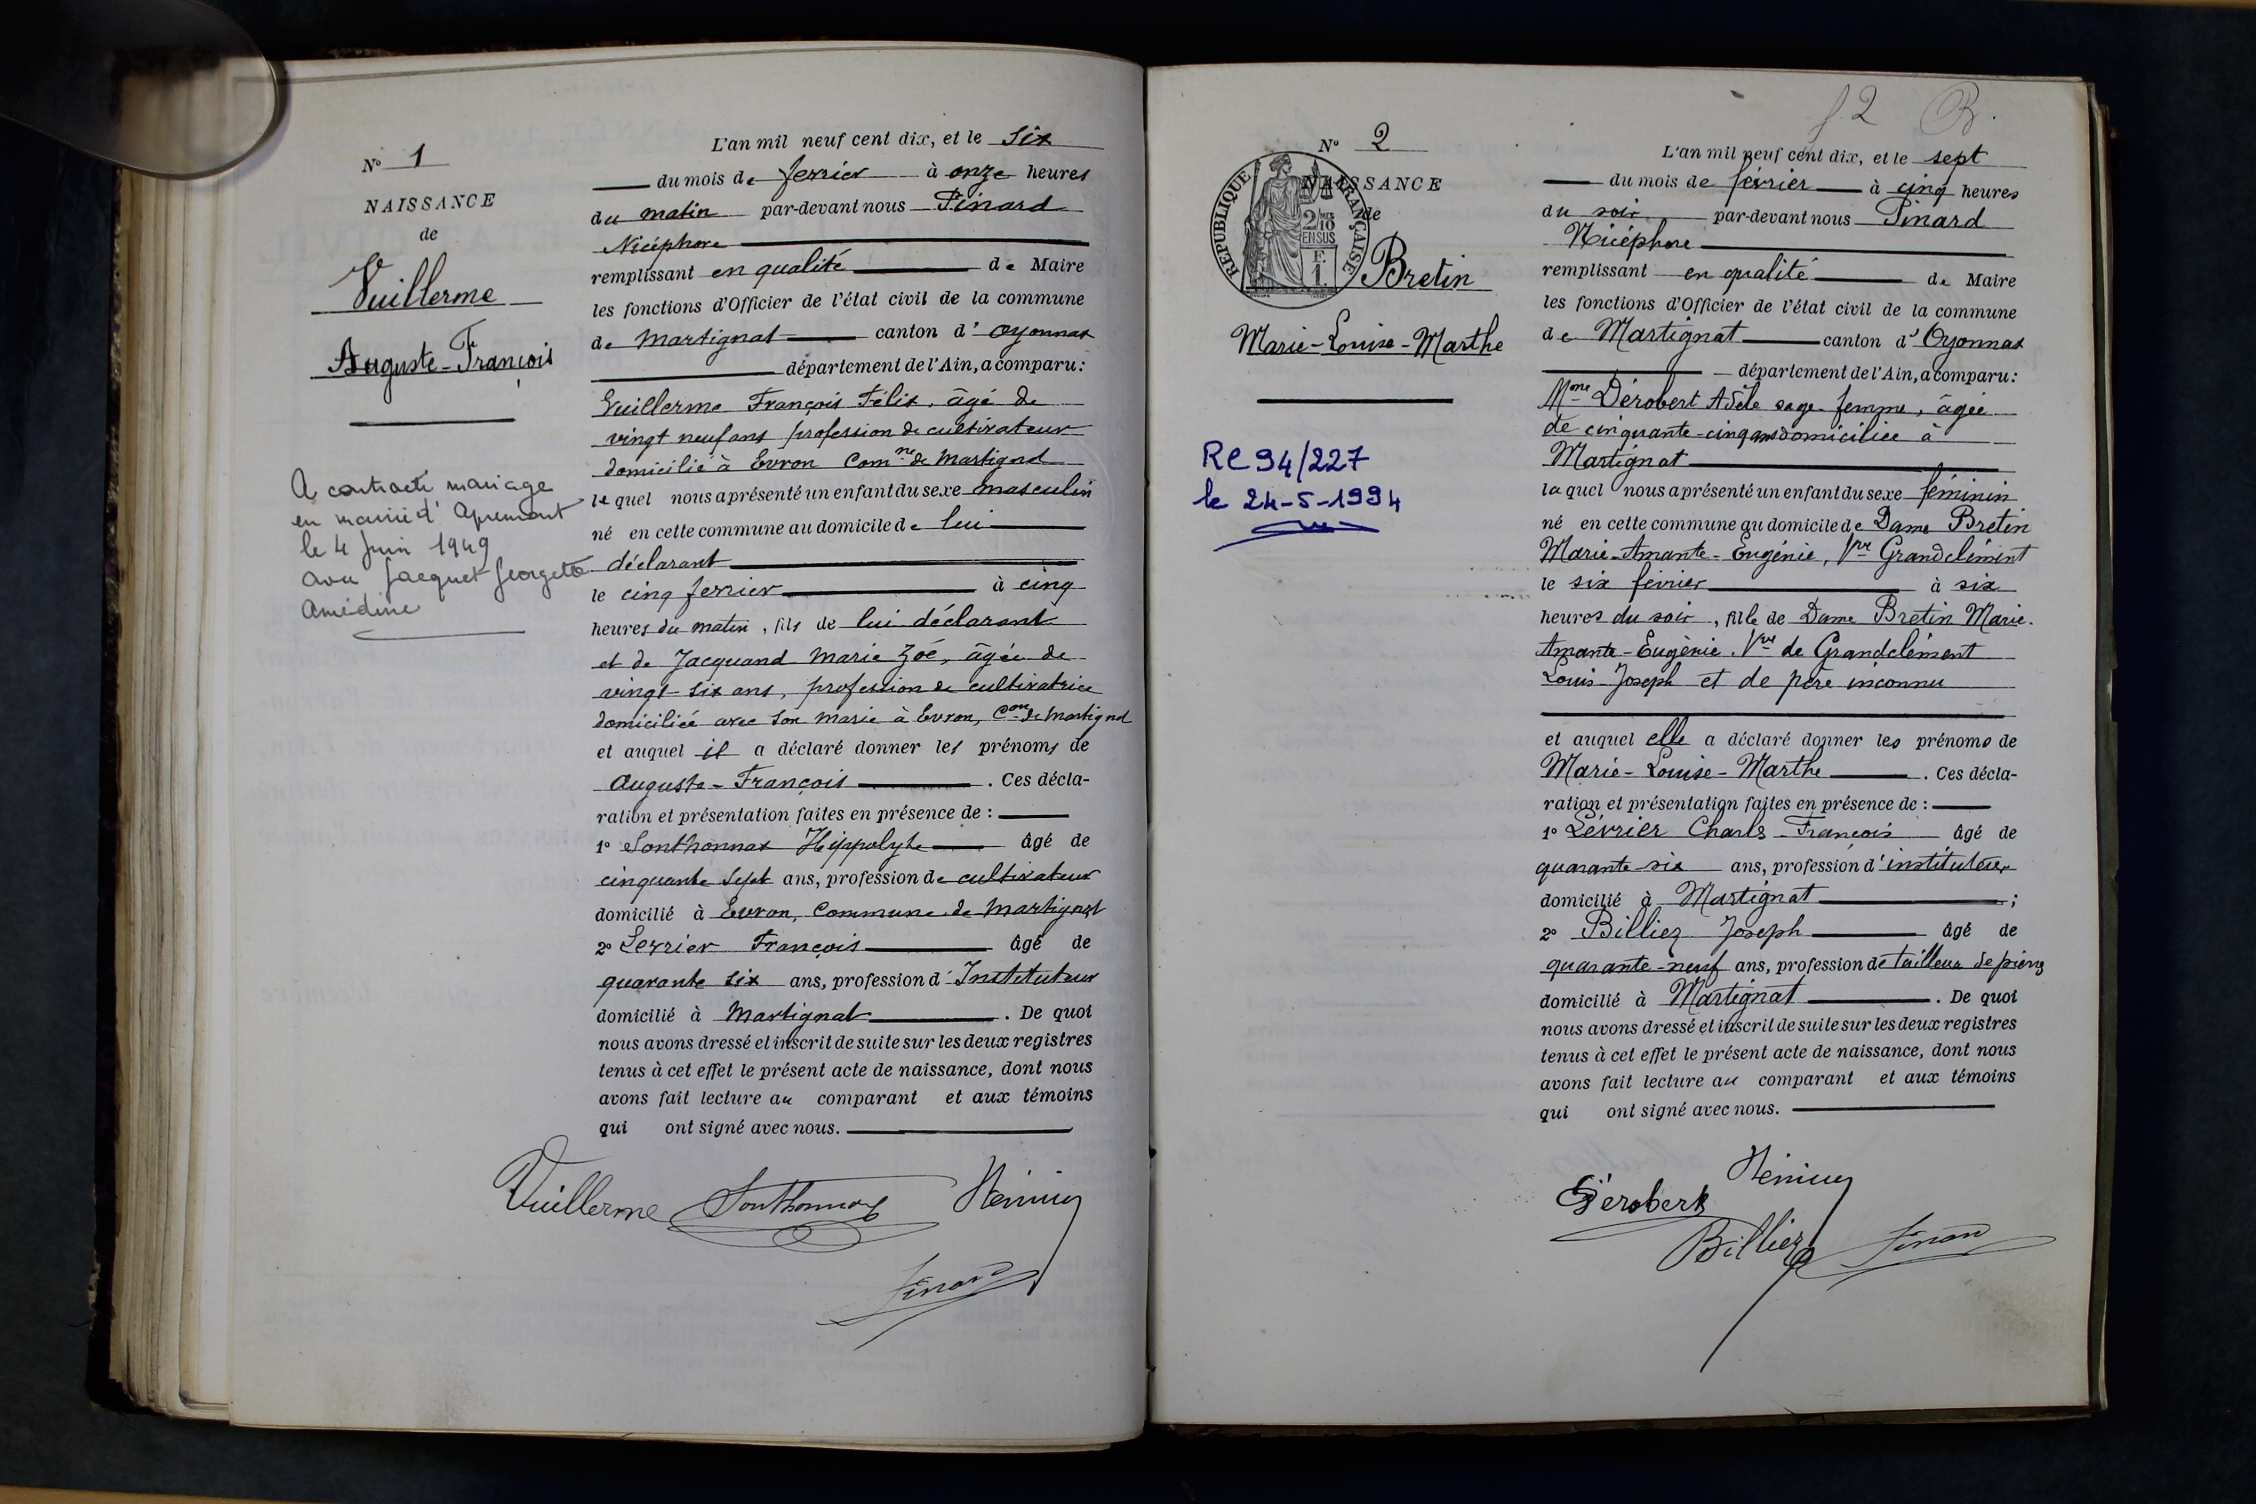 N° 1
NAISSANCE
de
Vuillerme
Auguste-François
A contracté mariage
en mairie d'Apremont
le 4 Juin 1949
avec Jacquet Georgette
Amédine
L'an mil neuf cent dix, et le six
du mois de fevrier à onze heures
du matin par-devant nous Pinard
Nicéphore
remplissant en qualité de Maire
les fonctions d'Officier de l'état civil de la commune
de Martignat canton d'Oyonnax
département de l'Ain, a comparu :
Vuillerme François Félix, âgé de
vingt neuf ans profession de cultivateur
domicilié à Evron Com.ne de Martignat
lequel nous a présenté un enfant du sexe masculin
né en cette commune au domicile de lui
déclarant
le cinq fevrier à cinq
heures du matin, fils de lui déclarant
et de Jacquand Marie Zoé, âgée de
vingt-six ans, profession de cultivatrice
domiciliée avec son marie à Evron, Con de Martignat
et auquel il a déclaré donner les prénoms de
Auguste-François . Ces décla-
ration et présentation faites en présence de :
1° Sonthonnax Hippolyte âgé de
cinquante sept ans, profession de cultivateur
domicilié à Evron, Commune de Martignat
2° Levrier François âgé de
quarante six ans, profession d'Instituteur
domicilié à Martignat . De quoi
nous avons dressé et inscrit de suite sur les deux registres
tenus à cet effet le présent acte de naissance, dont nous
avons fait lecture au comparant et aux témoins
qui ont signé avec nous.
Vuillerme Sonthonnax
f 2 B.
N° 2
NAISSANCE
de
REPUBLIQUE FRANÇAISE
2/10
EN SUS
F.
1.
Bretin
Marie-Louise-Marthe
RC 94/227
le 24-5-1994
L'an mil neuf cent dix, et le sept
du mois de février à cinq heures
du soir par-devant nous Pinard
Nicéphore
remplissant en qualité de Maire
les fonctions d'Officier de l'état civil de la commune
de Martignat canton d'Oyonnax
département de l'Ain, a comparu :
Mme Dérobert Adèle sage-femme, âgée
de cinquante-cinq ans domiciliée à
Martignat
laquel nous a présenté un enfant du sexe féminin
né en cette commune au domicile de Dame Bretin
Marie-Amante-Eugénie, Vve Grandclément
le six février à six
heures du soir, fille de Dame Bretin Marie-
Amante-Eugènie Vve de Grandclément
Louis-Joseph et de père inconnu
et auquel elle a déclaré donner les prénoms de
Marie-Louise-Marthe . Ces décla-
ration et présentation faites en présence de :
1° Lévrier Charls-François âgé de
quarante-six ans, profession d'instituteur
domicilié à Martignat ;
2° Billiez Joseph âgé de
quarante-neuf ans, profession de tailleur de pierres
domicilié à Martignat . De quoi
nous avons dressé et inscrit de suite sur les deux registres
tenus à cet effet le présent acte de naissance, dont nous
avons fait lecture au comparant et aux témoins
qui ont signé avec nous.
Dérobert
Billiez Pinard